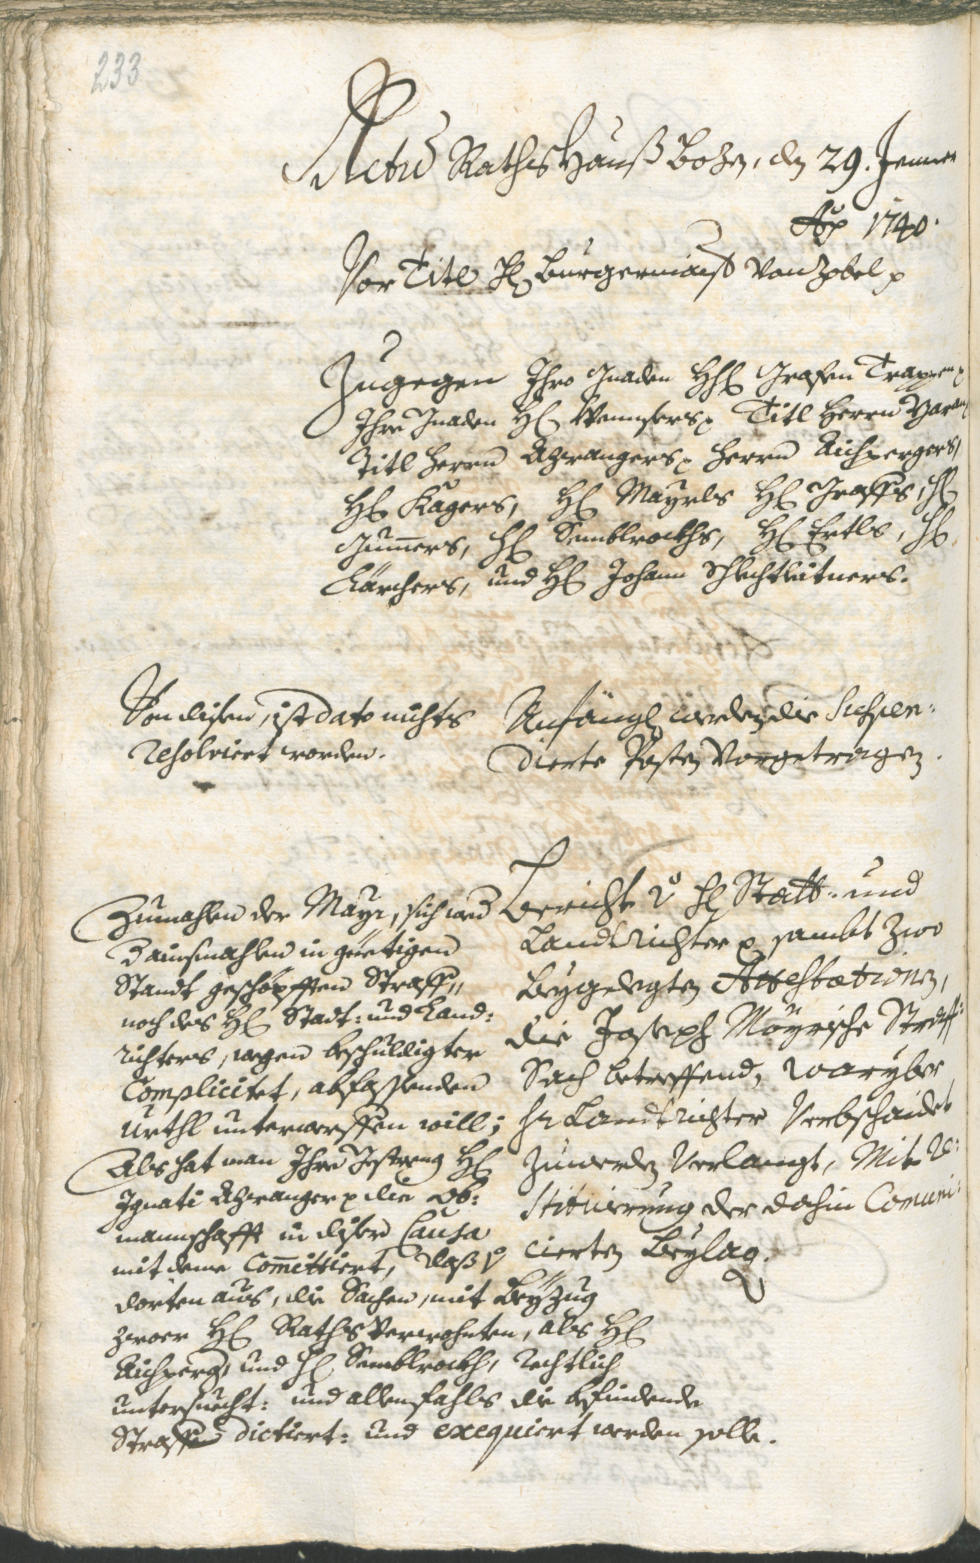 233
Actũ Rathshauß Bozen, den 29. Jenner
Aõ 1740.
Vor Titl H: Burgermaister Von Zobel p
Zugegen Ihro Gnaden HH: Grafen Trappen p
Ihro Gnaden H: Wenisers p Titl Herrn
Titl Herrn Azwangers p Herrn Aichpergers,
H: Kagers, H: Mayrls H: Graffs, H:
Gumers, H: Semblrockhs, H: Ertls, H:
Karchers, und H: Johann Schlechtleitners.
Von disen, ist dato nichts
resolviert worden.
Anfängl: werden die suspen-
dierte Posten Vorgetragen.
Zumahlen der Mayr, sich wed
dainsmahlen in güetigen
Standt geschöpfften Straff,,
noch des H: Stadt: und Land:
richters, wegen beschuldigter
Complicitet, abfassenden
Urthl unterwerffen will;
Als hat man Ihro Gestreng H:
Ignati Azwanger p die Ob:
mannschafft in diser Causa
mit deme Comittiert, daß
dorten aus, die Sachen, mit Beyzug
zwoer H: Raths Verwohnten, als H:
Aichperg, und H: Semblrockh, rechtlich
untersuecht: und allenfahls die befindende
Straffe dictiert: und exequiert werden solle.
Bericht V: H: Statt: und
Landtrichter p sambt zwo
beygelegten Attestationen,
die Joseph Mayrische Straff:
Sach betreffend, warüber
Hr Landtrichter Verbschaidet
zuwerden Verlangt, Mit Re:
stituierung der dahin Comuni:
cierten Beylag.